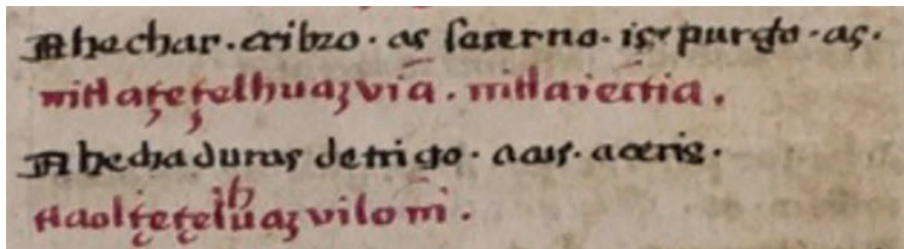 Ahechar. cribro. as secerno. is. purgo. as.
nitlaçeçelhuazvia. nitlaiectia.
Ahechaduras detrigo. acus. aceris.
tlaolçeçelhuazviloni.